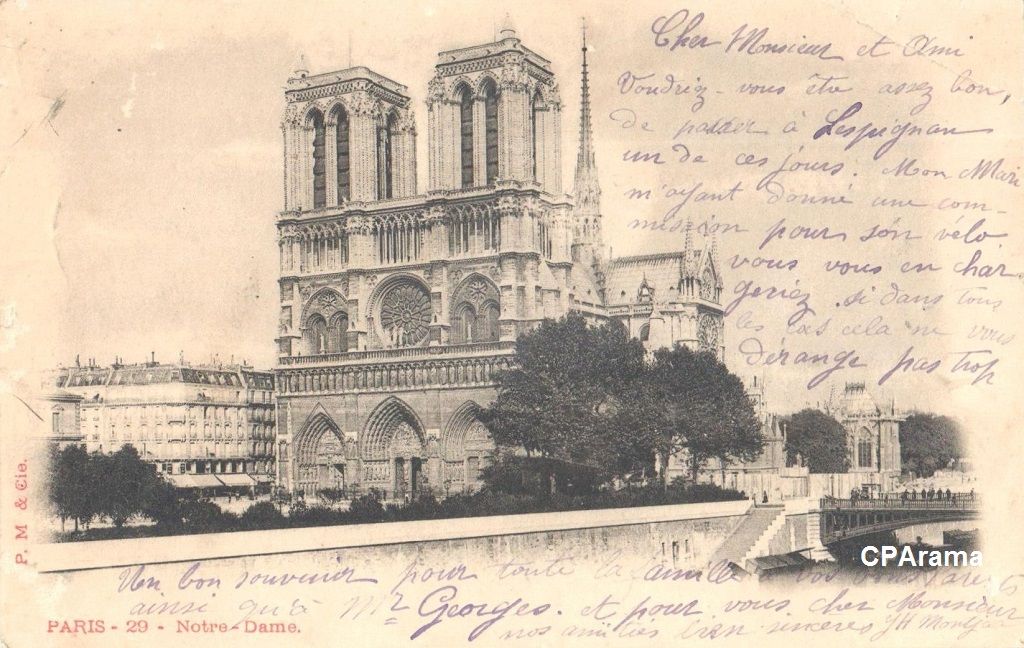 Cher Monsieur et Ami
Voudriez-vous être assez bon,
de passer à Lespignan
un de ces jours. Mon Mari
m'ayant donné une com-
mission pour son vélo
vous vous en char
geriez. si dans tous
les cas cela ne vous
dérange pas trop
Un bon souvenir pour toute la famille à vos
ainsi qu'à Mr Georges. et pour vous. cher Monsieur
nos amitiés bien sincères
PARIS - 29 - Notre-Dame.
P. M & Cie.
CPArama